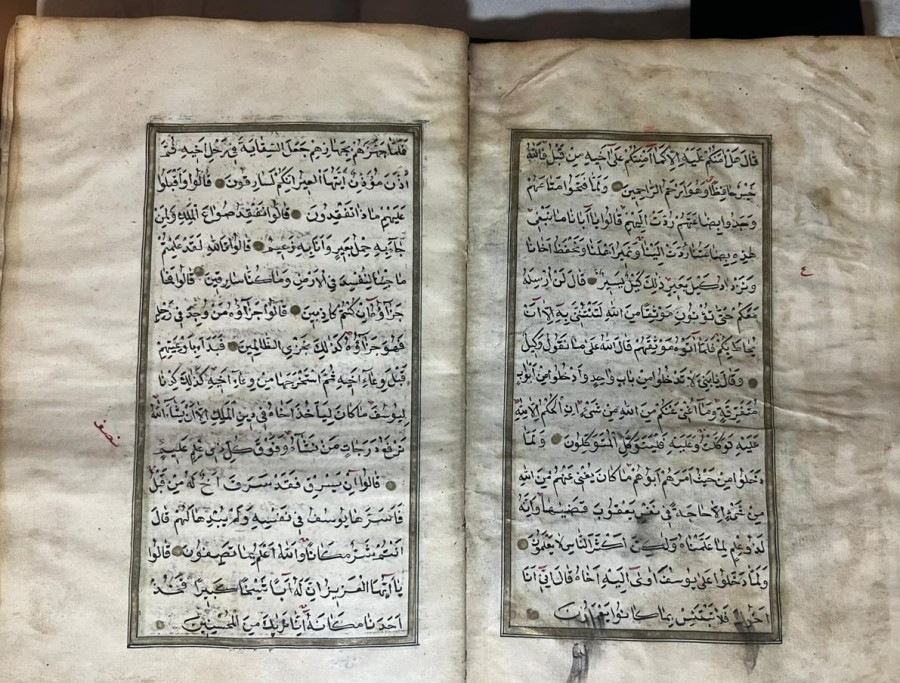 قال هل امنكم عليه الا كما امنتكم على اخيه من قبل فالله
خير حافظا وهو ارحم الراحمين ولما فتحوا متاعهم
وجدوا بضاعتهم ردت اليهم قالوا يا ابانا ما نبغى
هذه بضاعتنا ردت الينا ونمير اهلنا ونحفظ اخانا
ونزداد كيل بعير ذلك كيل يسير قال لن ارسله
معكم حتى تؤتون موثقا من الله لتأتننى به الا ان
يحاط بكم فلما اتوه موثقهم قال الله على ما نقول وكيل
وقال يا بنى لا تدخلوا من باب واحد وادخلوا من ابواب
متفرقة وما اغنى عنكم من الله من شىء ان الحكم الا لله
عليه توكلت وعليه فليتوكل المتوكلون ولما
دخلوا من حيث امرهم ابوهم ما كان يغنى عنهم من الله
من شىء الا حاجة فى نفس يعقوب قضيها وانه
لذو علم لما علمناه ولكن اكثر الناس لا يعلمون
ولما دخلوا على يوسف اوى اليه اخاه قال انى انا
اخوك فلا تبتئس بما كانوا يعملون
ع
فلما جهزهم بجهازهم جعل السقاية فى رحل اخيه ثم
اذن مؤذن ايتها العير انكم لسارقون قالوا واقبلوا
عليهم ماذا تفقدون قالوا نفقد صواع الملك ولمن
جاء به حمل بعير وانا به زعيم قالوا تالله لقد علمتم
ما جئنا لنفسد فى الارض وما كنا سارقين قالوا فما
جزاؤه ان كنتم كاذبين قالوا جزاؤه من وجد فى رحله
فهو جزاؤه كذلك نجزى الظالمين فبدأ باوعيتهم
قبل وعاء اخيه ثم استخرجها من وعاء اخيه كذلك كدنا
ليوسف ما كان ليأخذ اخاه فى دين الملك الا ان يشاء الله
نرفع درجات من نشاء وفوق كل ذى علم عليم
قالوا ان يسرق فقد سرق اخ له من قبل
فاسرها يوسف فى نفسه ولم يبدها لهم قال
انتم شر مكانا والله اعلم بما تصفون قالوا
يا ايها العزيز ان له ابا شيخا كبيرا فخذ
احدنا مكانه انا نريك من المحسنين
نصف